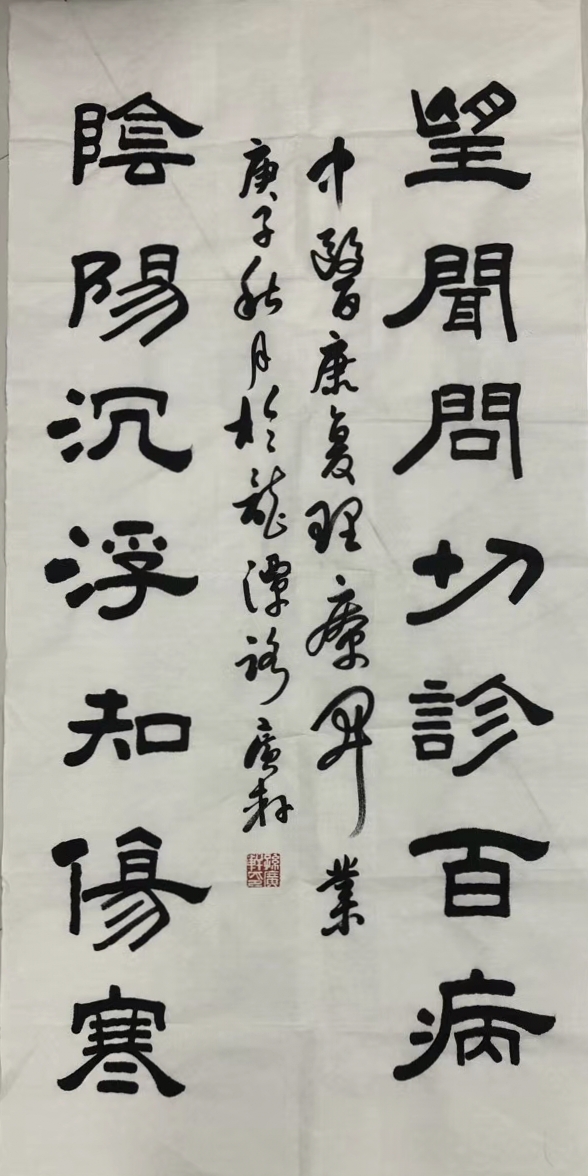 望聞問切診百病
中醫康复理療界業
庚子秋月於龍潭路廣軒
陰陽沉浮知傷寒